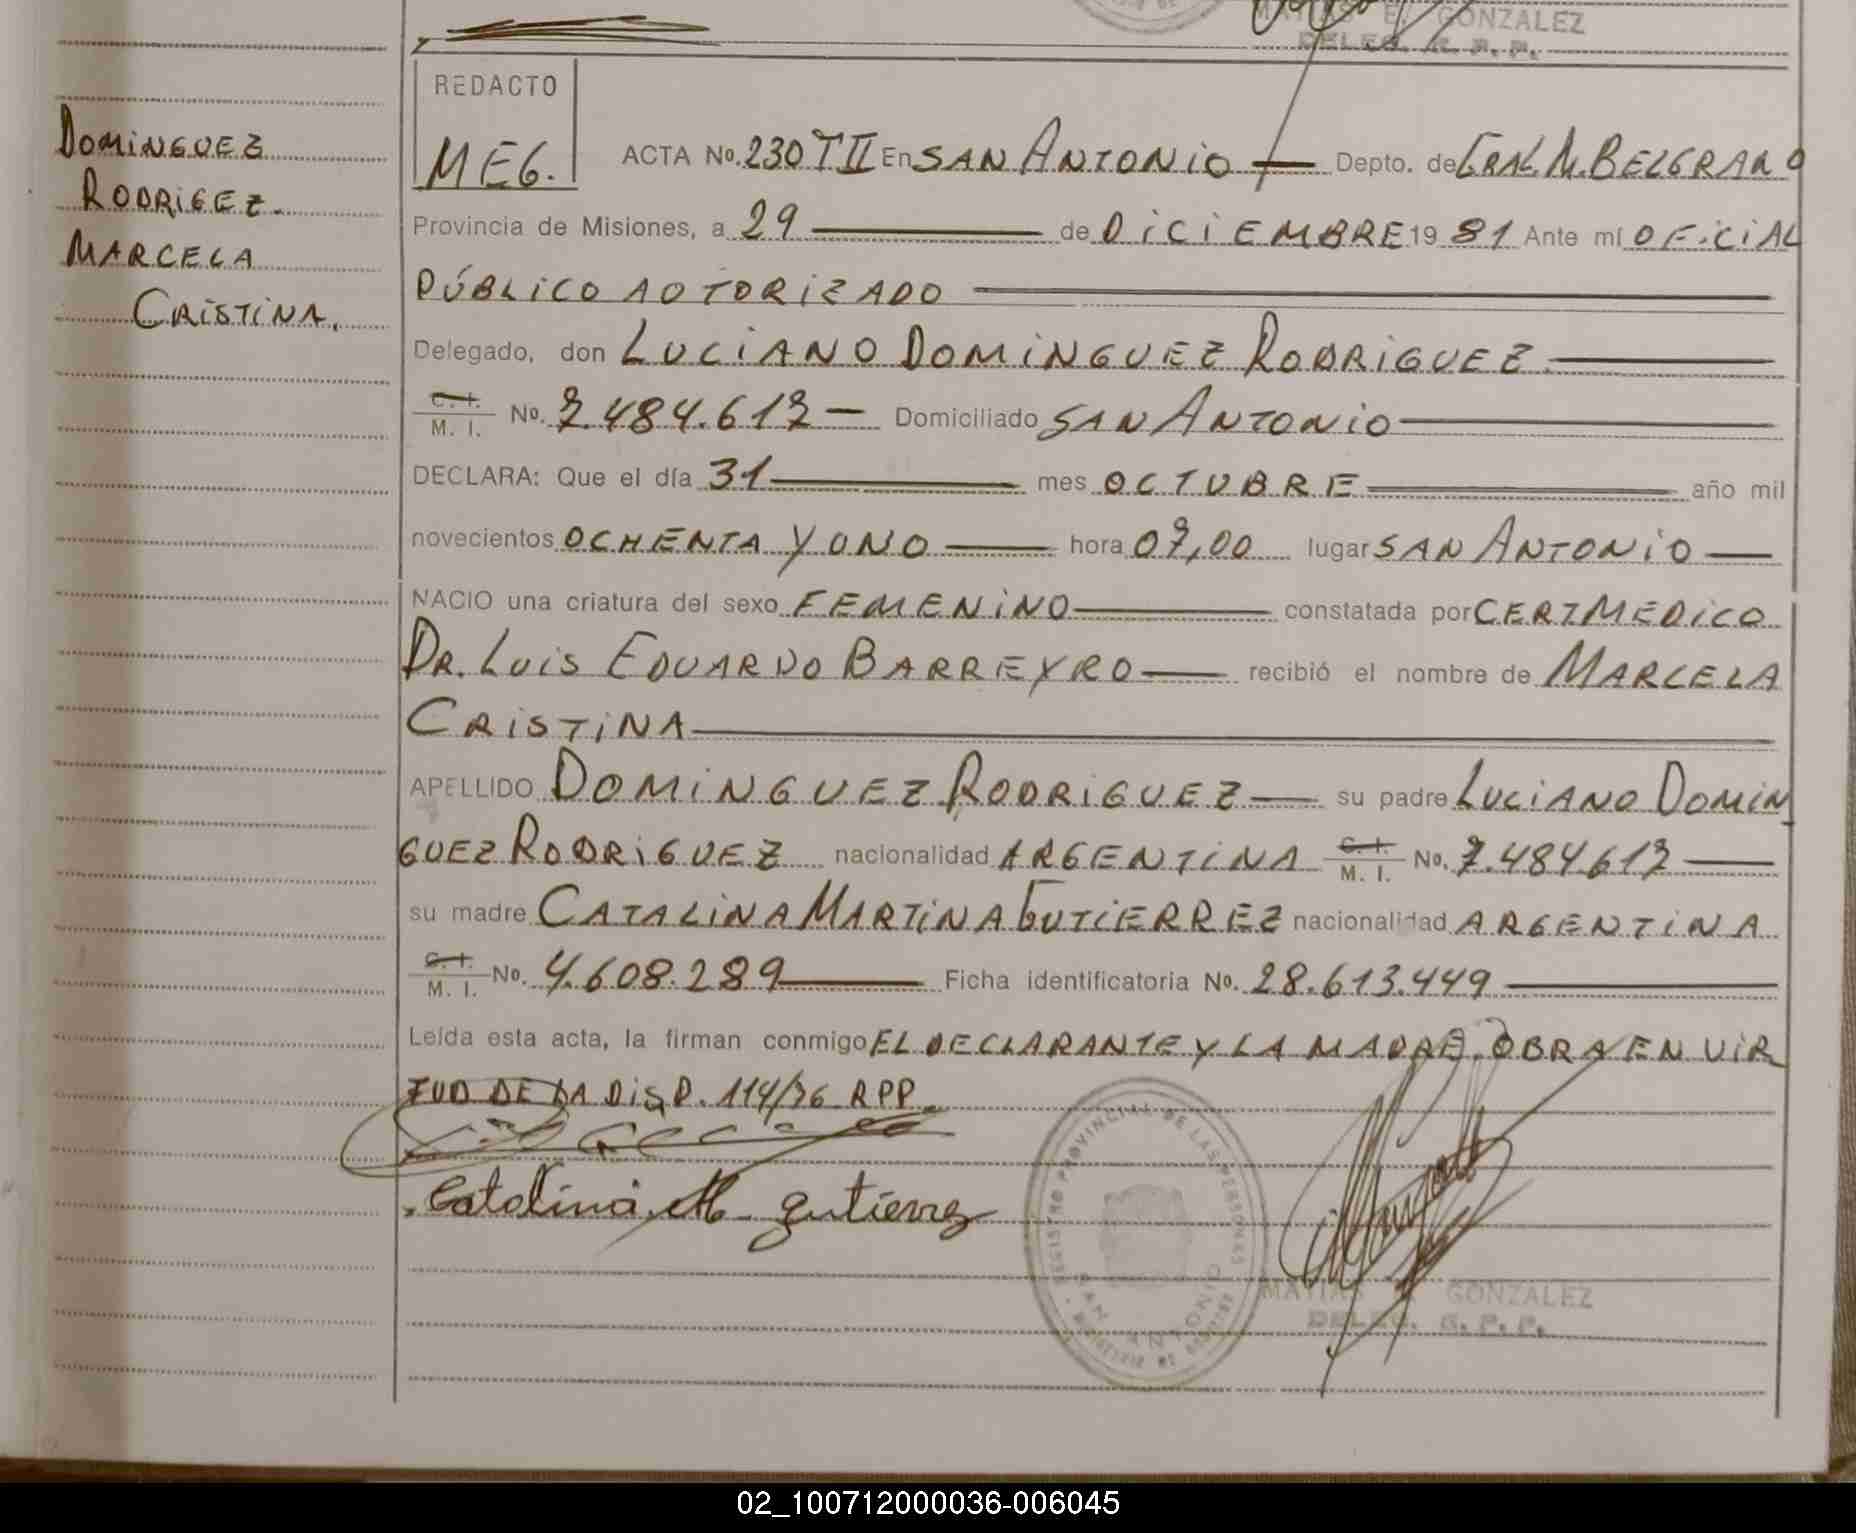 MATIAS E. GONZALEZ
DELEG. G. P. P.
DOMINGUEZ
RODRIGEZ.
MARCELA
CRISTINA.
REDACTO
MEG.
ACTA No. 230 T II En SAN ANTONIO Depto. de GRAL. M. BELGRANO
Provincia de Misiones, a 29 de DICIEMBRE 19 81 Ante mí OFICIAL
PÚBLICO AUTORIZADO
Delegado, don LUCIANO DOMINGUEZ RODRIGUEZ.
C. I. M. I. No. 7.484.617 Domiciliado SAN ANTONIO
DECLARA: Que el día 31 mes OCTUBRE año mil
novecientos OCHENTA Y UNO hora 07,00 lugar SAN ANTONIO
NACIO una criatura del sexo FEMENINO constatada por CERT MEDICO
DR. LUIS EDUARDO BARREYRO recibió el nombre de MARCELA
CRISTINA
APELLIDO DOMINGUEZ RODRIGUEZ su padre LUCIANO DOMIN
GUEZ RODRIGUEZ nacionalidad ARGENTINA C. I. M. I. No. 7.484.617
su madre CATALINA MARTINA GUTIERREZ nacionalidad ARGENTINA
C. I. M. I. No. 4.608.289 Ficha identificatoria No. 28.613.449
Leída esta acta, la firman conmigo EL DECLARANTE Y LA MADRE. OBRA EN VIR
TUD DE LA DISP. 114/76 RPP
Catalina M. Gutierrez
REGISTRO PROVINCIAL DE LAS PERSONAS
SAN ANTONIO
MINISTERIO DE GOBIERNO
MATIAS GONZALEZ
DELEG. G. P. P.
02_100712000036-006045